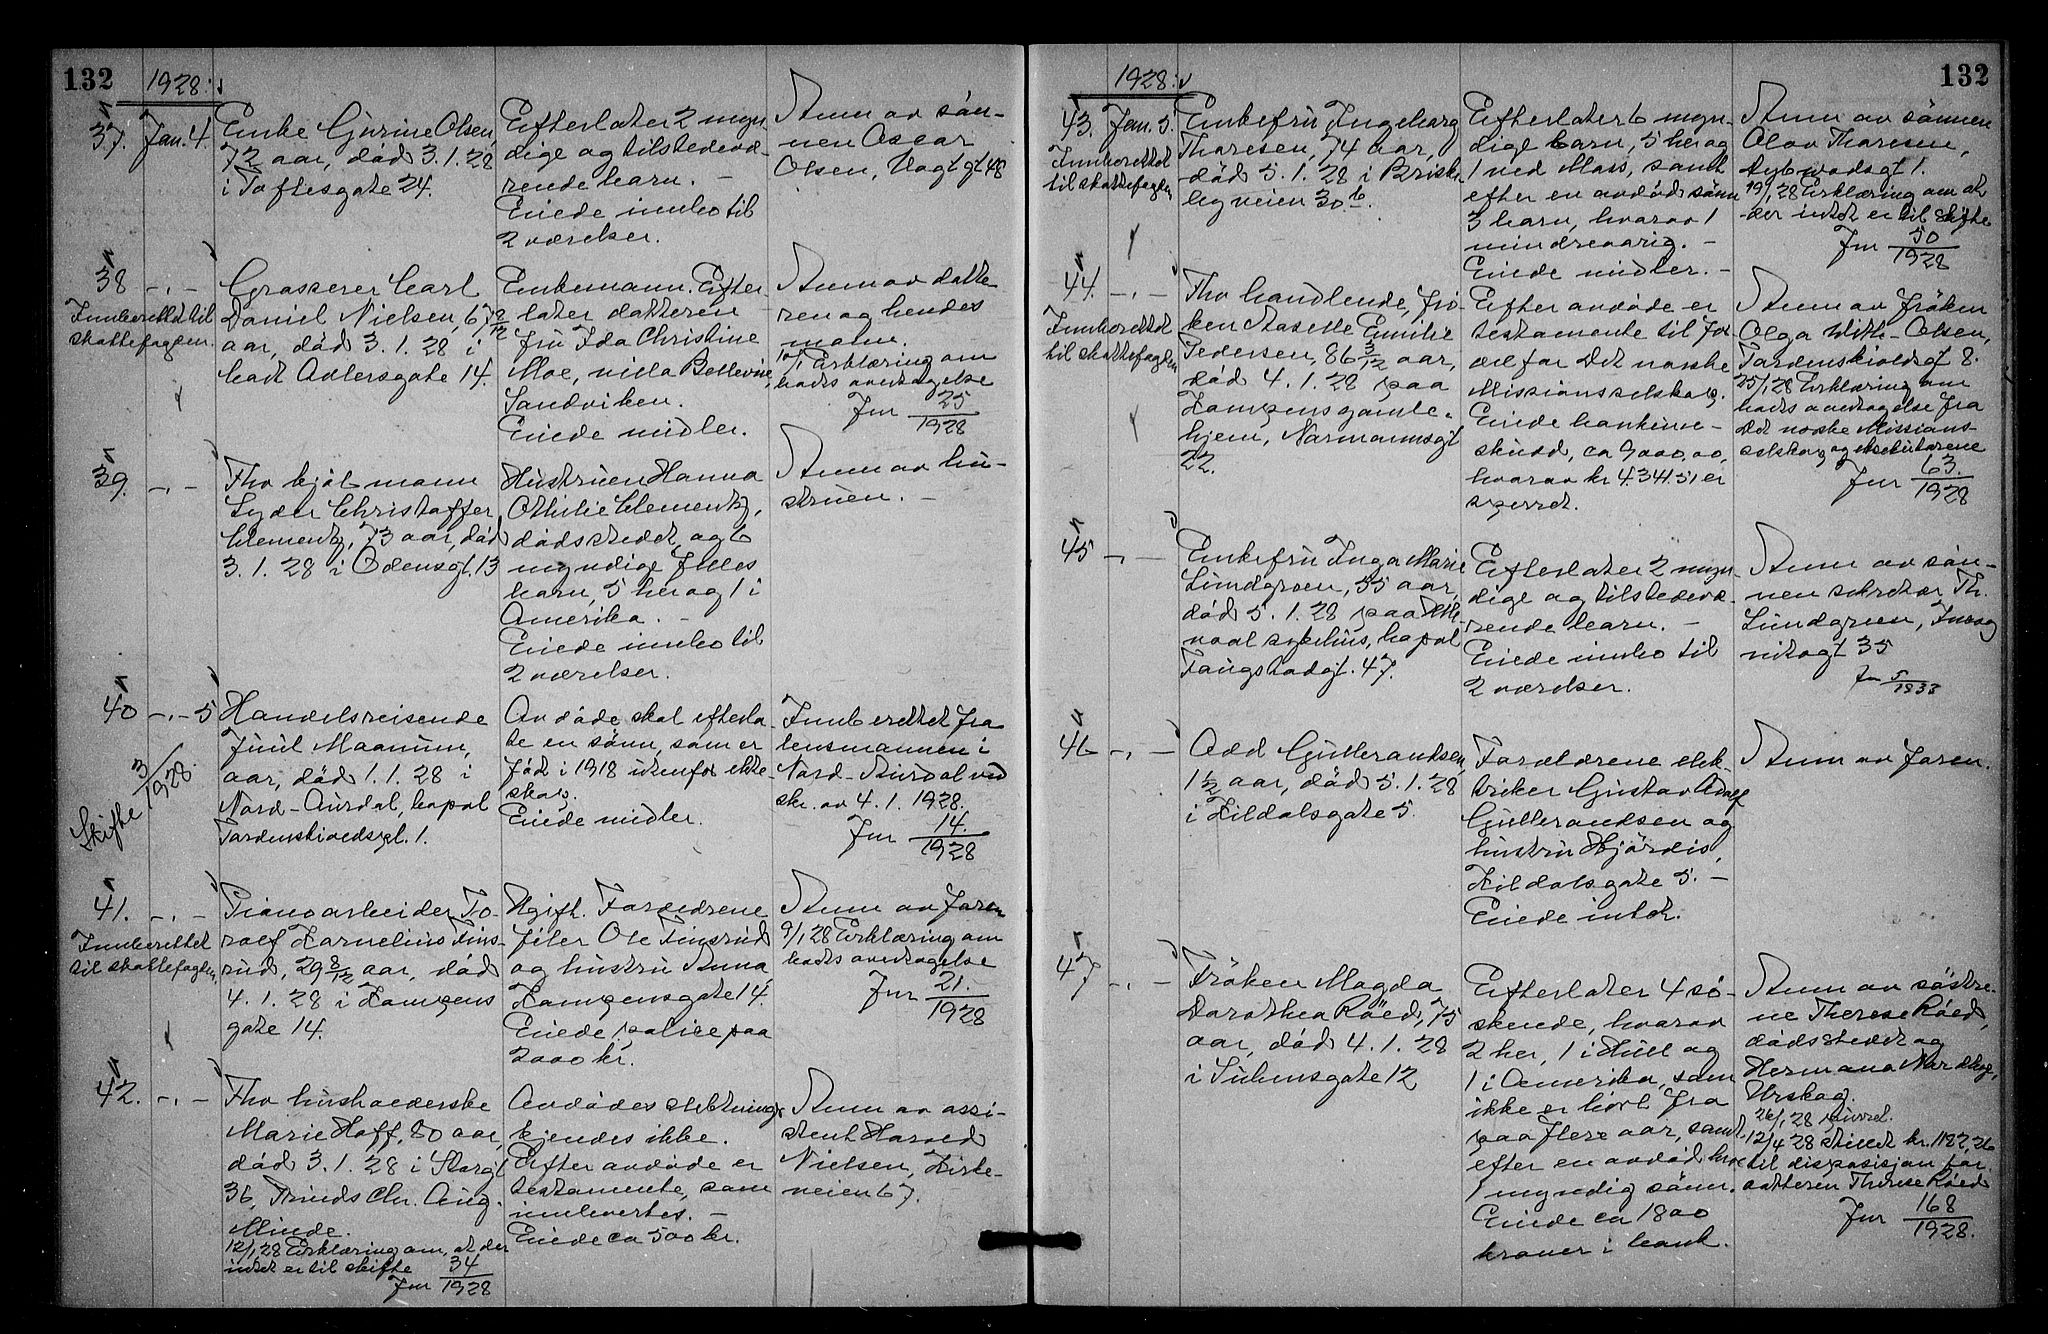 132
1928.
37. Jan. 4.
Enke Gurine Olsen,
72 aar, død 3.1.28
i Toftesgate 24.
Efterlater 2 myn-
dige og tilstedevæ-
rende barn. -
Eiede innbo til
2 værelser.
Anm av søn-
nen Oscar
Olsen, Vogtgt 48
38 -,-
Innberettet til
skattefogden.
Grosserer Carl
Daniel Nielsen, 67 2/12
aar, død 3.1.28 i
Cort Adlersgate 14.
Enkemann. Efter-
later datteren
fru Ida Christine
Moe, villa Bellevue,
Sandviken.
Eiede midler.
Anm av datte-
ren og hendes
mann.
10/1 Erklæring om
boets overtagelse
Jnr 25/1928
39. -,-
Fhv kjølemann
Lyder Christoffer
Clementz, 73 aar, død
3.1.28 i Odensgt. 13
Hustruen Hanna
Othilie Clementz,
dødsstedet, og 6
myndige felles
barn, 5 her og 1 i
Amerika. -
Eiede innbo til
2 værelser.
Anm av hu-
struen. -
40 -,- 5
Skifte 3/1928.
Handelsreisende
Juul Maanum,
aar, død 1.1.28 i
Nord-Aurdal, bopæl
Tordenskioldsgt. 1.
Avdøde skal efterla-
te en sønn, som er
født i 1918 utenfor ekte-
skap.
Eiede midler.
Innberettet fra
lensmannen i
Nord-Aurdal ved
skr. av 4.1.1928.
Jnr 14./1928
41. -,-
Innberettet
til skattefogden,
Pianoarbeider To-
ralf Kornelius Fins-
rud, 29 8/12 aar, død
4.1.28 i Kampens
gate 14.
Ugift. Forældrene
filer Ole Finsrud
og hustru Anna,
Kampensgate 14.
Eiede police paa
2000 kr.
Anm av faren
9/1 28 Erklæring om
boets overtagelse
Jnr 21./1928
42. -,-
Fhv husholderske
Marie Hoff, 80 aar,
død 3.1.28 i Storgt
36, Trinds Chr. Aug.
Minde.
12/1 28 Erklæring om, at der
intet er til skifte
Jnr 34/1928
Avdødes slektninger
kjendes ikke.
Efter avdøde er
testamente, som
innleveres. -
Eiede ca 500 kr.
Anm av assi-
stent Harald
Nielsen, Kirke-
veien 67.
132
1928.
43. Jan. 5.
Innberettet
til skattefogden
Enkefru Ingeborg
Thoresen, 74 aar,
død 5.1.28 i Briske-
byveien 30 b.
Efterlater 6 myn-
dige barn, 5 her og
1 ved Moss, samt
efter en avdød sønn
3 barn, hvorav 1
mindreaarig. -
Eiede midler. -
Anm av sønnen
Olav Thoresen,
1.
19/1 28 Erklæring om at
der intet er til skifte
Jnr 50/1928
44. -,-
Innberettet
til skattefogden
Fhv handlende, frø-
ken Emilie
Pedersen, 86 3/12 aar,
død 4.1.28 paa
Kampens gamle-
hjem, Normannsgt
22.
Efter avdøde er
testamente til for-
del for Det norske
Missionsselskap.
Eiede bankinne-
skudd, ca 9000,00,
hvorav kr 4341.51 er
sperret.
Anm av frøken
Olga With-Olsen,
Tordenskioldsgt 8.
25/1 28 Erklæring om
boets overtagelse fra
Det norske Missions-
selskap og eksekutorene
Jnr 63./1928
45 -,-
Enkefru Inga Marie
Lundgreen, 55 aar,
død 5.1.28 paa Ulle-
vaal sykehus, bopæl
Faugstadgt. 47.
Efterlater 2 myn-
dige og tilstedevæ-
rende barn. -
Eiede innbo til
2 værelser.
Anm av søn-
nen sekretær Th.
Lundgreen,
35
Jnr 5/1933
46 -,-
Odd Gulbrandsen,
1 1/2 aar, død 5.1.28
i Kildalsgate 5.
Forældrene elek-
triker Gustav Adolf
Gulbrandsen og
hustru Hjørdis,
Kildalsgate 5. -
Eiede intet.
Anm av faren.
47 -,-
Frøken Magda
Dorothea Røed, 75
aar, død 4.1.28
i Suhmsgate 12
Efterlater 4 sø-
skende, hvorav
2 her, 1 i Hull og
1 i Amerika, som
ikke er hørt fra
paa flere aar, samt
efter en avdød bror
1 myndig sønn.
Eiede ca 1800
kroner i bank.
Anm av søstre-
ne Therese Røed,
dødsstedet og
Hermana
Urskog.
26/1 28 sperret.
12/4 28 stillet kr. 1182,26
til disposisjon for
søsteren Therese Røed
Jnr 168/1928.